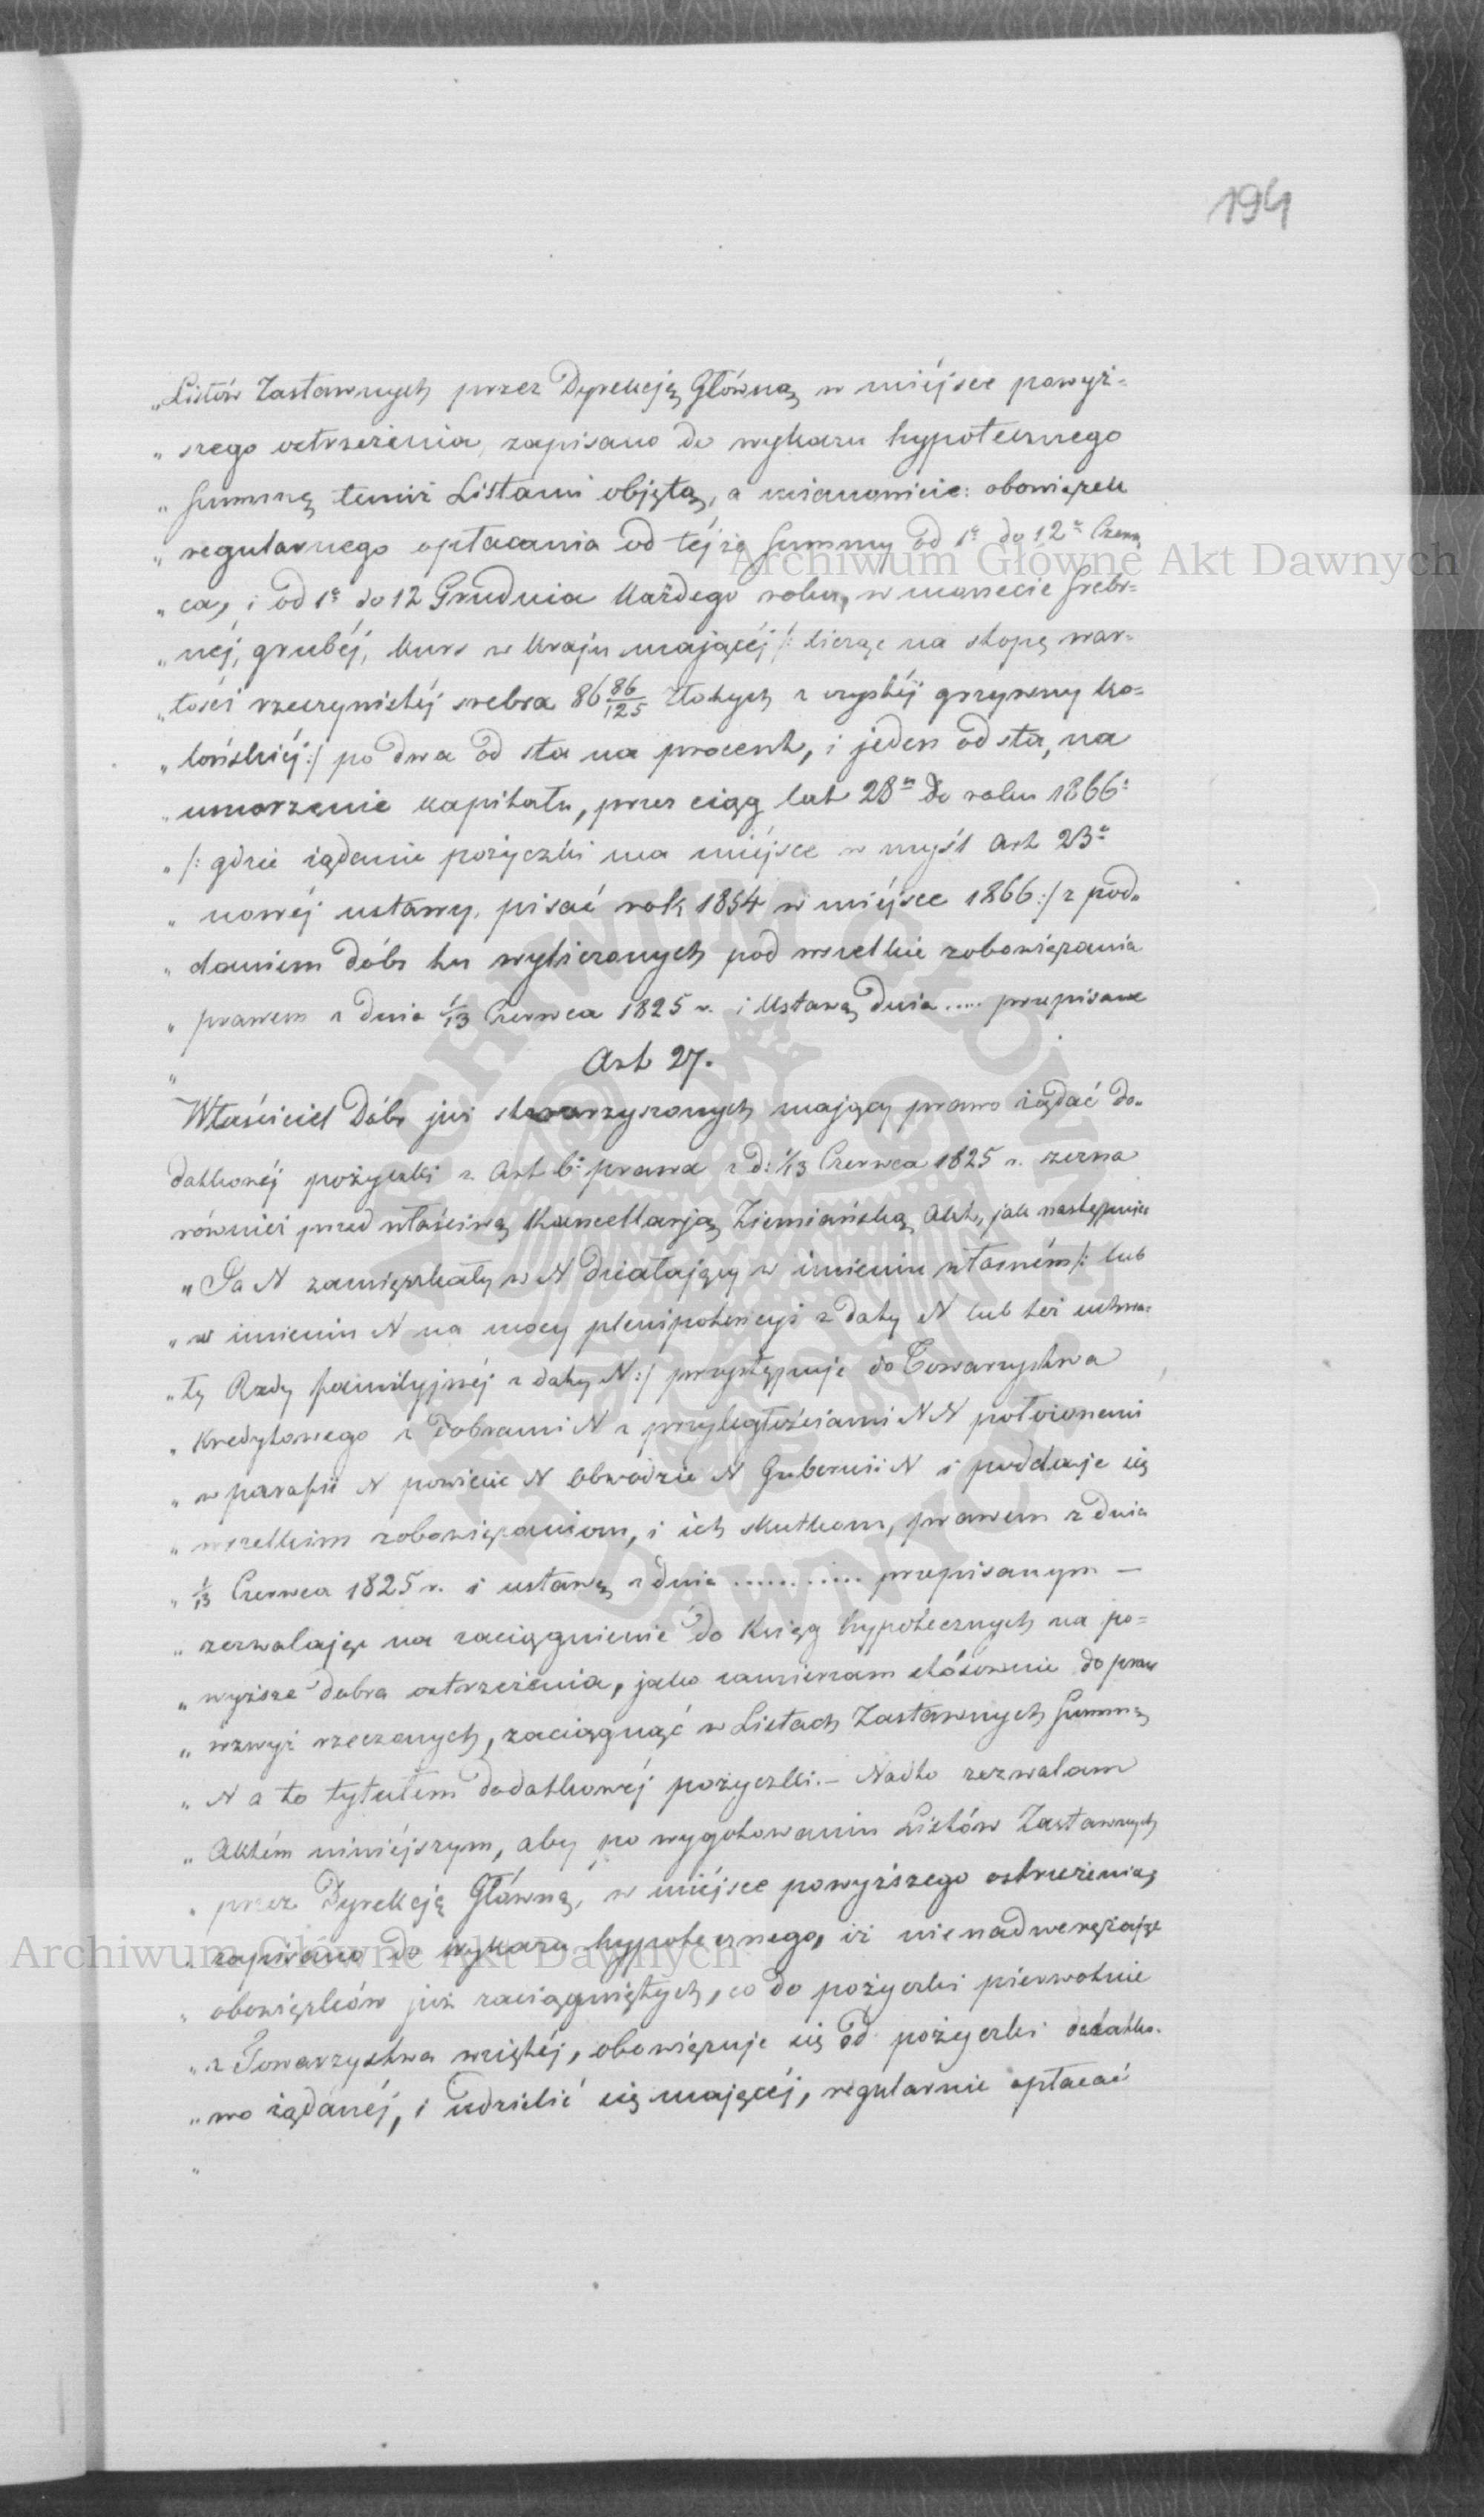 194
„Listów Zastawnych przez Dyrekcją Główną w miéjsce powyż-
„ szego ostrzeżenia, zapisano do wykazu hypotecznego
„ Summę temiż Listami objętą, a mianowicie: obowiązek
„ regularnego opłacania od téjże Summy od 1º do 12º Czerw
„ ca, i od 1º do 12 Grudnia każdego roku, w monecie srebr-
„ néj, grubéj, kurs w kraju mającéj /: licząc na stopę war-
„ tości rzeczywistéj srebra 86 86/125 Złotych z czystéj grzywny ko-
„ lońskiéj :/ po dwa od sta na procent, i jeden od sta, na
„ umorzenie kapitału, przez ciąg lat 28 do roku 1866º
„ /: gdzie żądanie pożyczki ma miéjsce w myśl Art 23º
„ nowéj ustawy, pisać rok 1854 w miéjsce 1866 :/ z pod-
„ daniem dóbr tu wyliczonych pod wszelkie zobowiązania
„ prawem z dnia 1/13 Czerwca 1825 r. i Ustawą dnia ..... przepisane
„ Art 27.
Właściciel Dóbr już stowarzyszonych mający prawo żądać do-
datkowéj pożyczki z Art 6º prawa z d: 1/13 Czerwca 1825 r. zezna
również przed właściwą Kancellarją Ziemiańską Akt, jak następuje
„ Ja N zamięszkały w N działający w imieniu własném /: lub
„ w imieniu N na mocy plenipotencyi z daty N lub też uchwa-
„ ły Rady familyjnéj z daty N :/ przystępuje do Towarzystwa
„ Kredytowego z Dobrami N z przyległościami NN położonemi
„ w parafii N powiecie N Obwodzie N Gubernii N i poddaje się
„ wszelkim zobowiązaniom, i ich skutkom, prawem z dnia
„ 1/13 Czerwca 1825 r. i ustawą z dnia ............ przepisanym —
„ zezwalając na zaciągnienie do Ksiąg hypotecznych na po-
„ wyższe dobra ostrzeżenia, jako zamierzam stósownie do praw
„ wzwyż rzeczonych, zaciągnąć w Listach Zastawnych Summę
„ N a to tytułem dodatkowéj pożyczki. — Nadto zezwalam
„ Aktém niniéjszym, aby po wygotowaniu Listów Zastawnych
„ przez Dyrekcją Główną, w miéjsce powyższego ostrzeżenia,
„ zapisano do wykazu hypotecznego, iż nienadwerężając
„ obowiązków już zaciągniętych, co do pożyczki piérwotnie
„ z Towarzystwa wziętéj, obowiązuje się od pożyczki dodatko-
„ wo żądanéj, i udzielić się mającéj, regularnie opłacać
„
Archiwum Główne Akt Dawnych
Archiwum Główne Akt Dawnych
ARCHIWUM GŁÓWNE AKT DAWNYCH